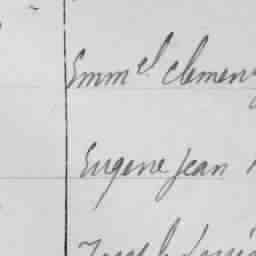 Emm.el Clemen
Eugene Jean
Joseph Louis